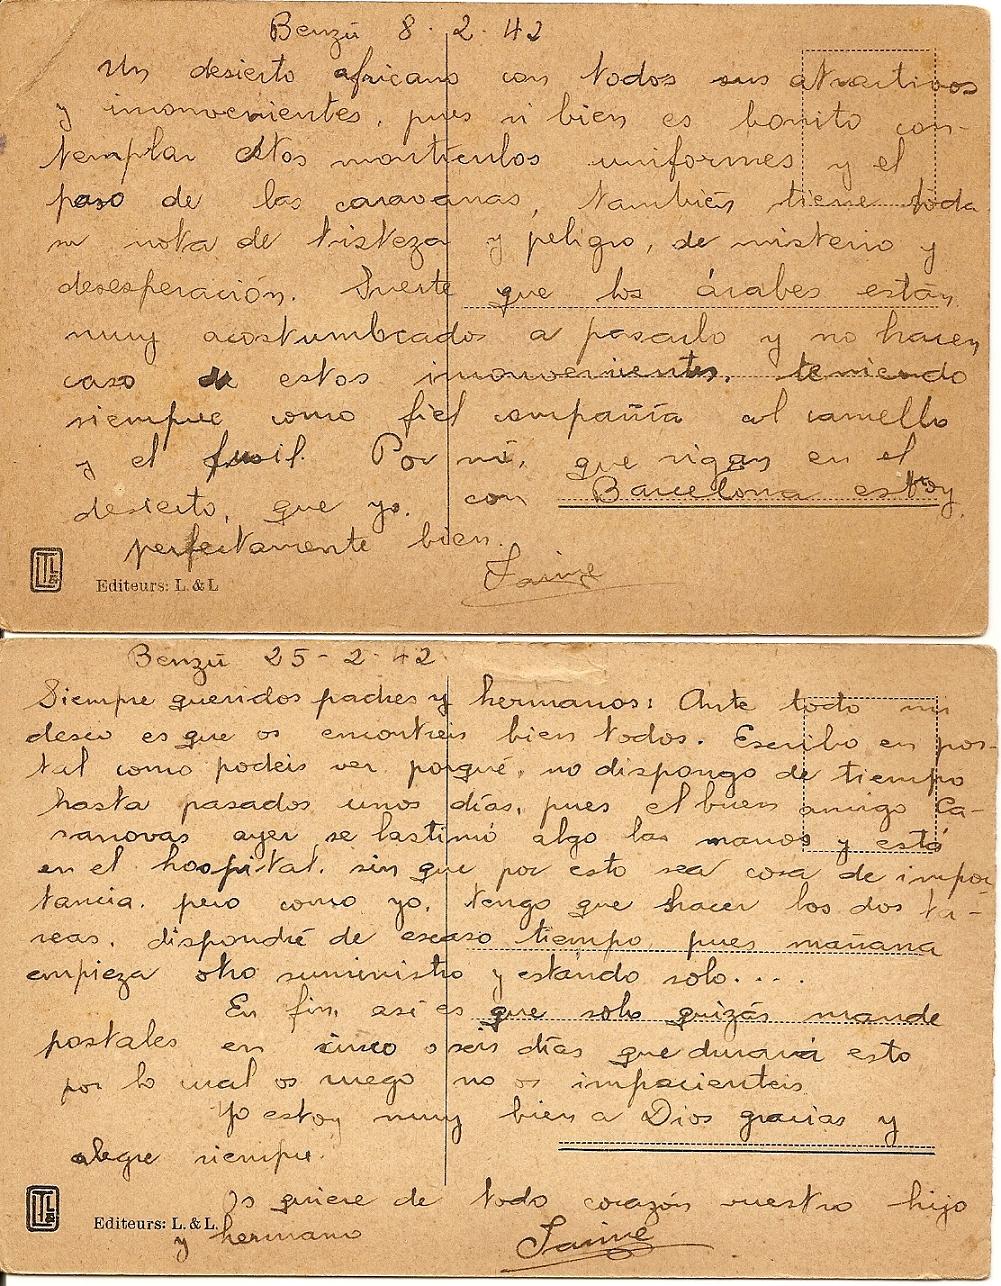 Benzú 8. 2. 42
Un desierto africano con todos sus atractivos
y inconvenientes, pues si bien es bonito con-
templar estos montículos uniformes y el
paso de las caravanas, también tiene toda
su nota de tristeza y peligro, de misterio y
desesperación. Suerte que los árabes están
muy acostumbrados a pasarlo y no hacen
caso de estos inconvenientes, teniendo
siempre como fiel compañía al camello
y el fusil. Por mi, que sigan en el
desierto, que yo, con Barcelona estoy
perfectamente bien.
Jaime
LTL
Editeurs: L. & L
Benzú 25-2-42
Siempre queridos padres y hermanos: Ante todo mi
deseo es que os encontreis bien todos. Escribo en pos-
tal como podeis ver, porqué, no dispongo de tiempo
hasta pasados unos días, pues el buen amigo Ca-
sanovas ayer se lastimó algo las manos y está
en el hospital, sin que por esto sea cosa de impor-
tancia, pero como yo, tengo que hacer los dos ta-
reas, dispondré de escaso tiempo pues mañana
empieza otro suministro y estando solo....
En fin, así es que solo quizás mande
postales en cinco o seis días que durará esto
por lo cual os ruego no os impacienteis
Yo estoy muy bien a Dios gracias y
alegre siempre.
Os quiere de todo corazón vuestro hijo
y hermano
Jaime
LTL
Editeurs: L. & L.